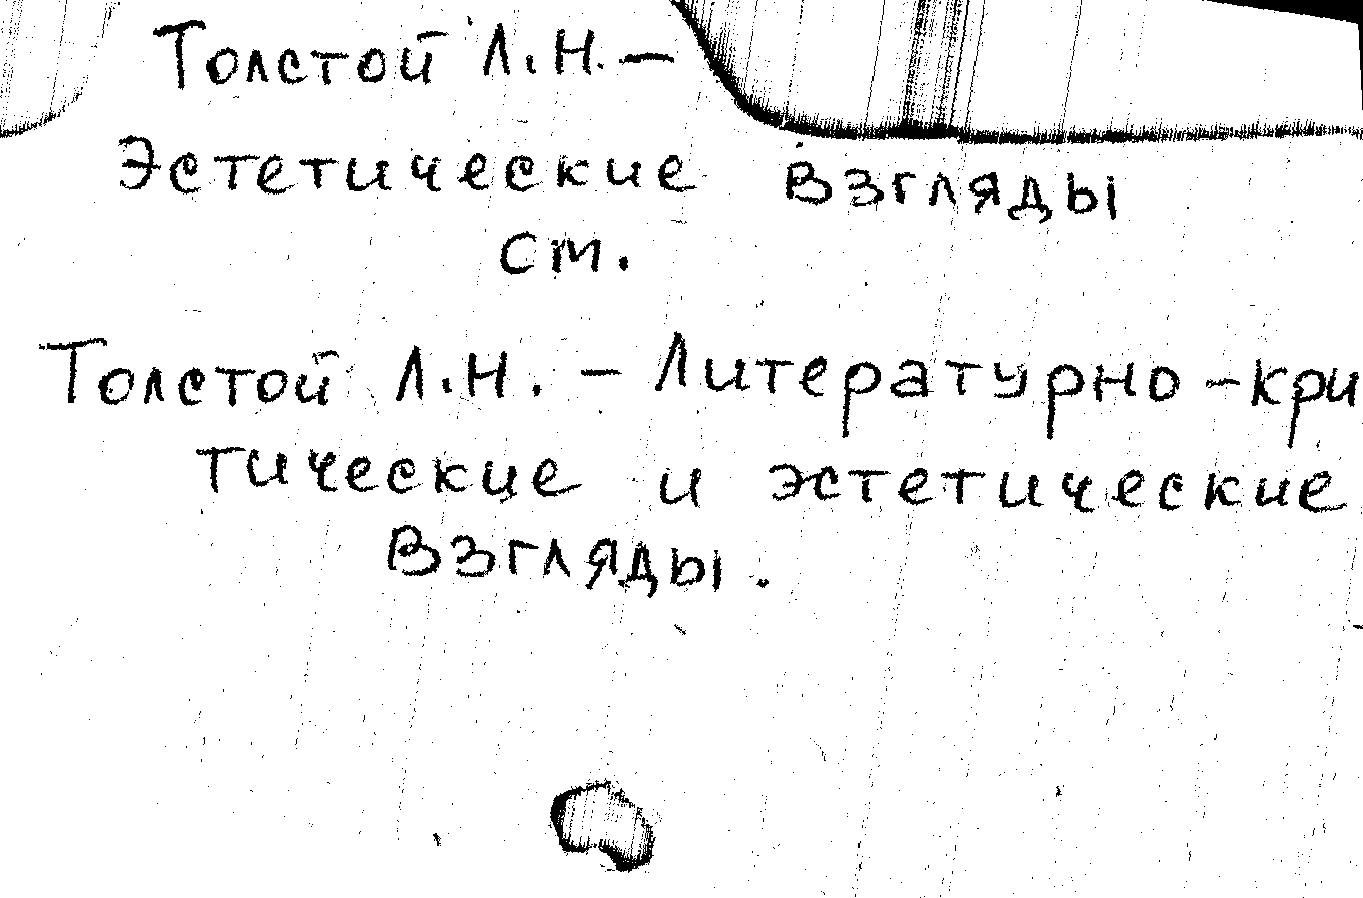 Толстой Л.Н. —
Эстетические взгляды
см.
Толстой Л.Н. — Литературно-кри
тические и эстетические
взгляды.